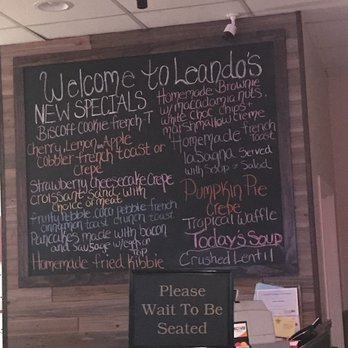 Welcome to Leando's
NEW SPECIALS
Biscoff Cookie French T
Cherry, Lemon or Apple
cobbler french toast or
crepe
Strawberry cheesecake crepe
croissant sand. with
choice of meat
fruity pebble coco pebble french
cinnamon toast crunch toast
Pancakes made with bacon
and sausage w/eggs on
top
Homemade fried Kibbie
Homemade Brownie
w/macadamia nuts,
white choc chips +
marshmallow creme
Homemade french toast
lasagna served
with soup or salad
Pumpkin Pie
Crepe
Tropical Waffle
Today's Soup
Crushed Lentil
Please
Wait To Be
Seated